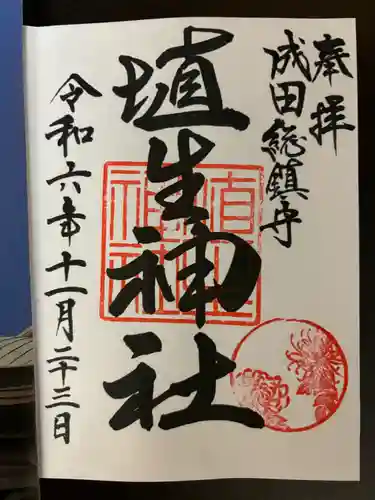 奉拝
成田総鎮守
埴生神社
令和六年十一月二十三日
埴生神社